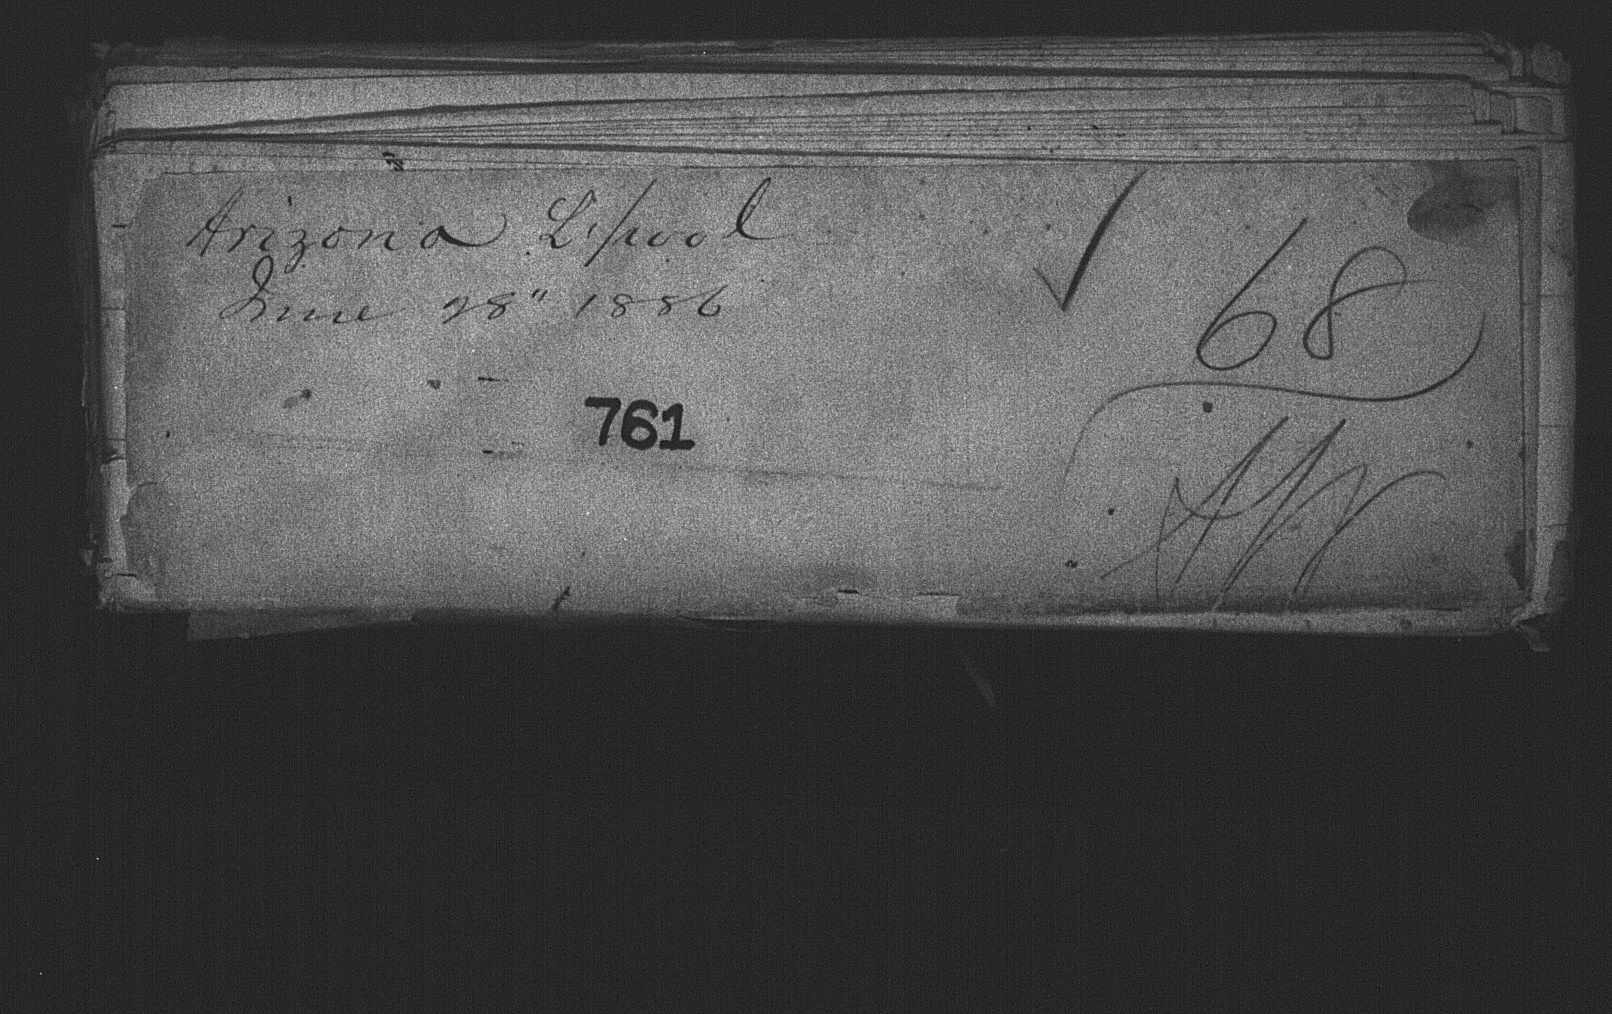 Arizona L'pool
June 28" 1886
68
761